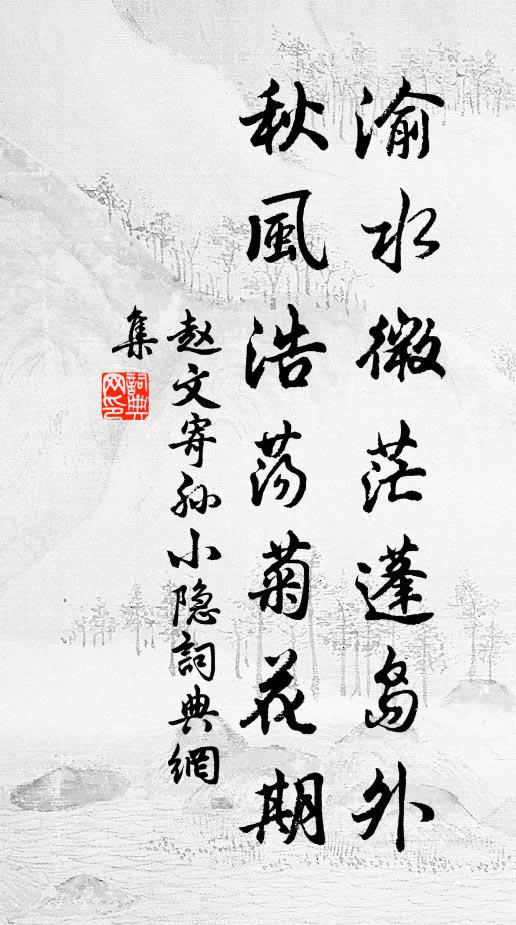 渝水微茫蓬岛外
秋風浩荡菊花期
赵文寄孙小隐詞典網
集
詞典网印